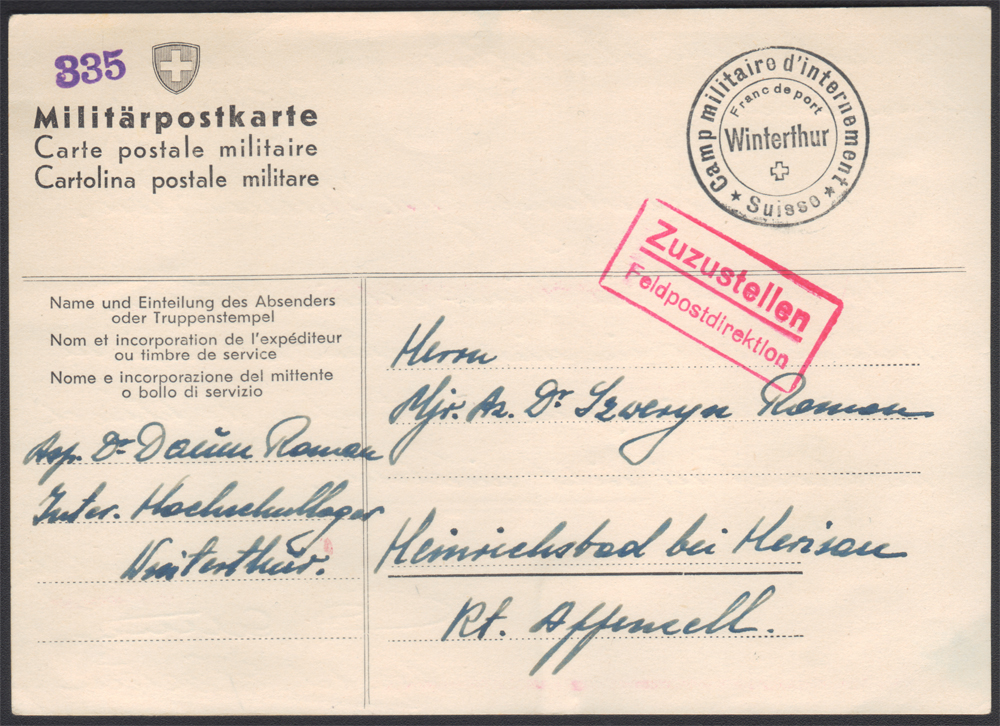 335
Militärpostkarte
Carte postale militaire
Cartolina postale militare
Camp militaire d'internement
Franc de port
Winterthur
Suisse
Zuzustellen
Feldpostdirektion
Name und Einteilung des Absenders
oder Truppenstempel
Nom et incorporation de l'expéditeur
ou timbre de service
Nome e incorporazione del mittente
o bollo di servizio
Asp. Dr Daum Roman
Inter. Hochschullager
Winterthur.
Herrn
Mjr. Az. Dr Szweryn Roman
Heinrichsbad bei Herisau
Kt. Appenzell.